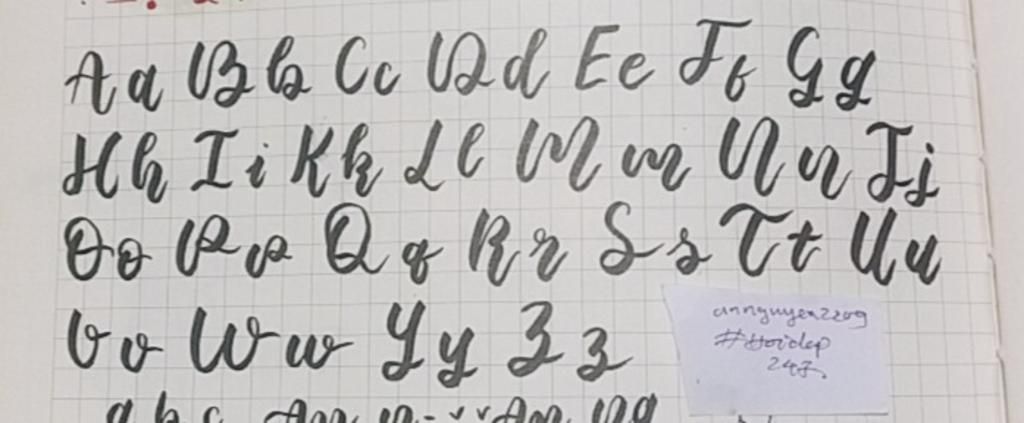 Aa Bb Cc Dd Ee Ff Gg
Hh Ii Kk Ll Mm Nn Jj
Oo Pp Qq Rr Ss Tt Uu
Vv Ww Yy Zz
annguyen2209
#Hoidep
247
a b c